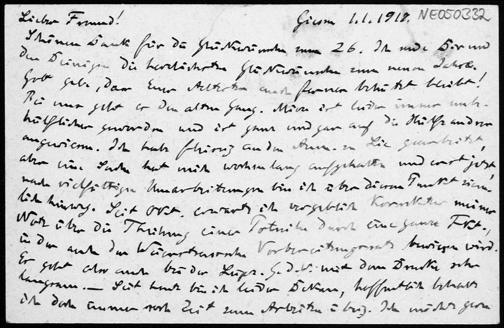 Lieber Freund! Giessen 1.1.1919. NE050332
Schönen Dank für die Glückwünsche zum 26. Ich sende Dir und
den Deinigen die herzlichsten Glückwünsche zum neuen Jahre.
Gott gebe, dass Eure Ältesten auch ferner behütet bleibt!
Bei uns geht es den alten Gang. Mutter ist leider immer un-
behilflicher geworden und ist ganz und gar auf die Hülfe anderer
angewiesen. Ich habe fleissig an den Anm. zu Lie gearbeitet,
aber eine Sache hat mich wochenlang aufgehalten und erst jetzt
nach vielfältigen Umarbeitungen bin ich über diesen Punkt ziem-
lich hinweg. Seit Okt. erwarte ich vergeblich Korrektur meiner
Note über die Theilung einer Potenzreihe durch eine ganze Fkt.,
in der auch der Weierstrasssche Vorbereitungssatz bewiesen wird.
Es geht aber auch bei der Leipz. G.d.W. mit dem Drucke sehr
langsam. — Seit heute bin ich leider Dekan, hoffentlich behalte
ich doch immer noch Zeit zum Arbeiten übrig. Ich möchte gern